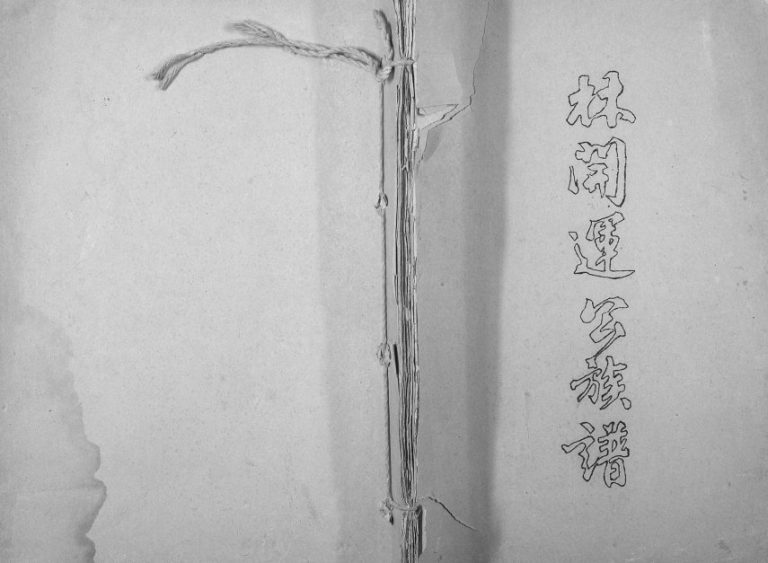 林開運公族譜